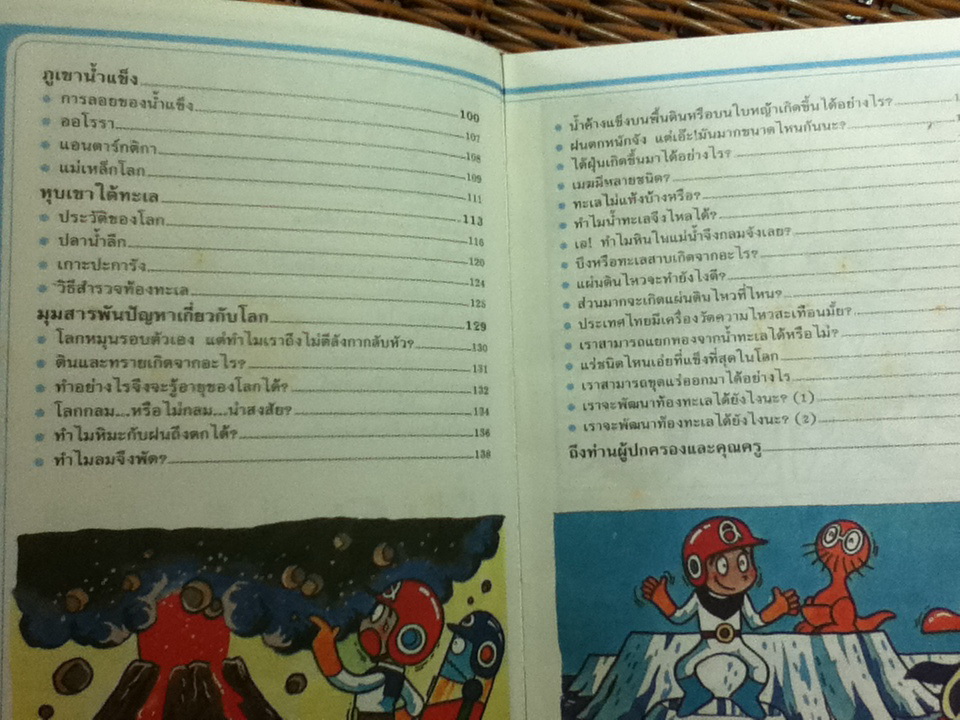 ภูเขาน้ำแข็ง 100
การลอยของน้ำแข็ง 107
ออโรรา 108
แอนตาร์กติกา 109
แม่เหล็กโลก 111
หุบเขาใต้ทะเล 113
ประวัติของโลก 116
ปลาน้ำลึก 120
เกาะปะการัง 124
วิธีสำรวจท้องทะเล 125
มุมสารพันปัญหาเกี่ยวกับโลก 129
โลกหมุนรอบตัวเอง แต่ทำไมเราถึงไม่ตีลังกากลับหัว? 130
ดินและทรายเกิดจากอะไร? 131
ทำอย่างไรจึงจะรู้อายุของโลกได้? 132
โลกกลม...หรือไม่กลม...น่าสงสัย? 134
ทำไมหิมะกับฝนถึงตกได้? 136
ทำไมลมจึงพัด? 138
น้ำค้างแข็งบนพื้นดินหรือบนใบหญ้าเกิดขึ้นได้อย่างไร?
ฝนตกหนักจัง แต่เอ๊ะ!มันมากขนาดไหนกันนะ?
ไต้ฝุ่นเกิดขึ้นมาได้อย่างไร?
เมฆมีหลายชนิด?
ทะเลไม่แห้งบ้างหรือ?
ทำไมน้ำทะเลจึงไหลได้?
เอ! ทำไมหินในแม่น้ำจึงกลมจังเลย?
บึงหรือทะเลสาบเกิดจากอะไร?
แผ่นดินไหวจะทำยังไงดี?
ส่วนมากจะเกิดแผ่นดินไหวที่ไหน?
ประเทศไทยมีเครื่องวัดความไหวสะเทือนมั้ย?
เราสามารถแยกทองจากน้ำทะเลได้หรือไม่?
แร่ชนิดไหนเอ่ยที่แข็งที่สุดในโลก
เราสามารถขุดแร่ออกมาได้อย่างไร
เราจะพัฒนาท้องทะเลได้ยังไงนะ? (1)
เราจะพัฒนาท้องทะเลได้ยังไงนะ? (2)
ถึงท่านผู้ปกครองและคุณครู